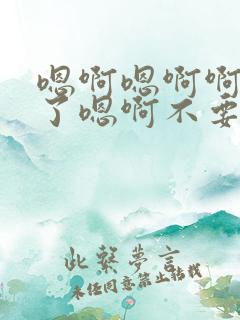 嗯啊嗯啊啊
了嗯啊不要
此系梦言
未经同意禁止转载